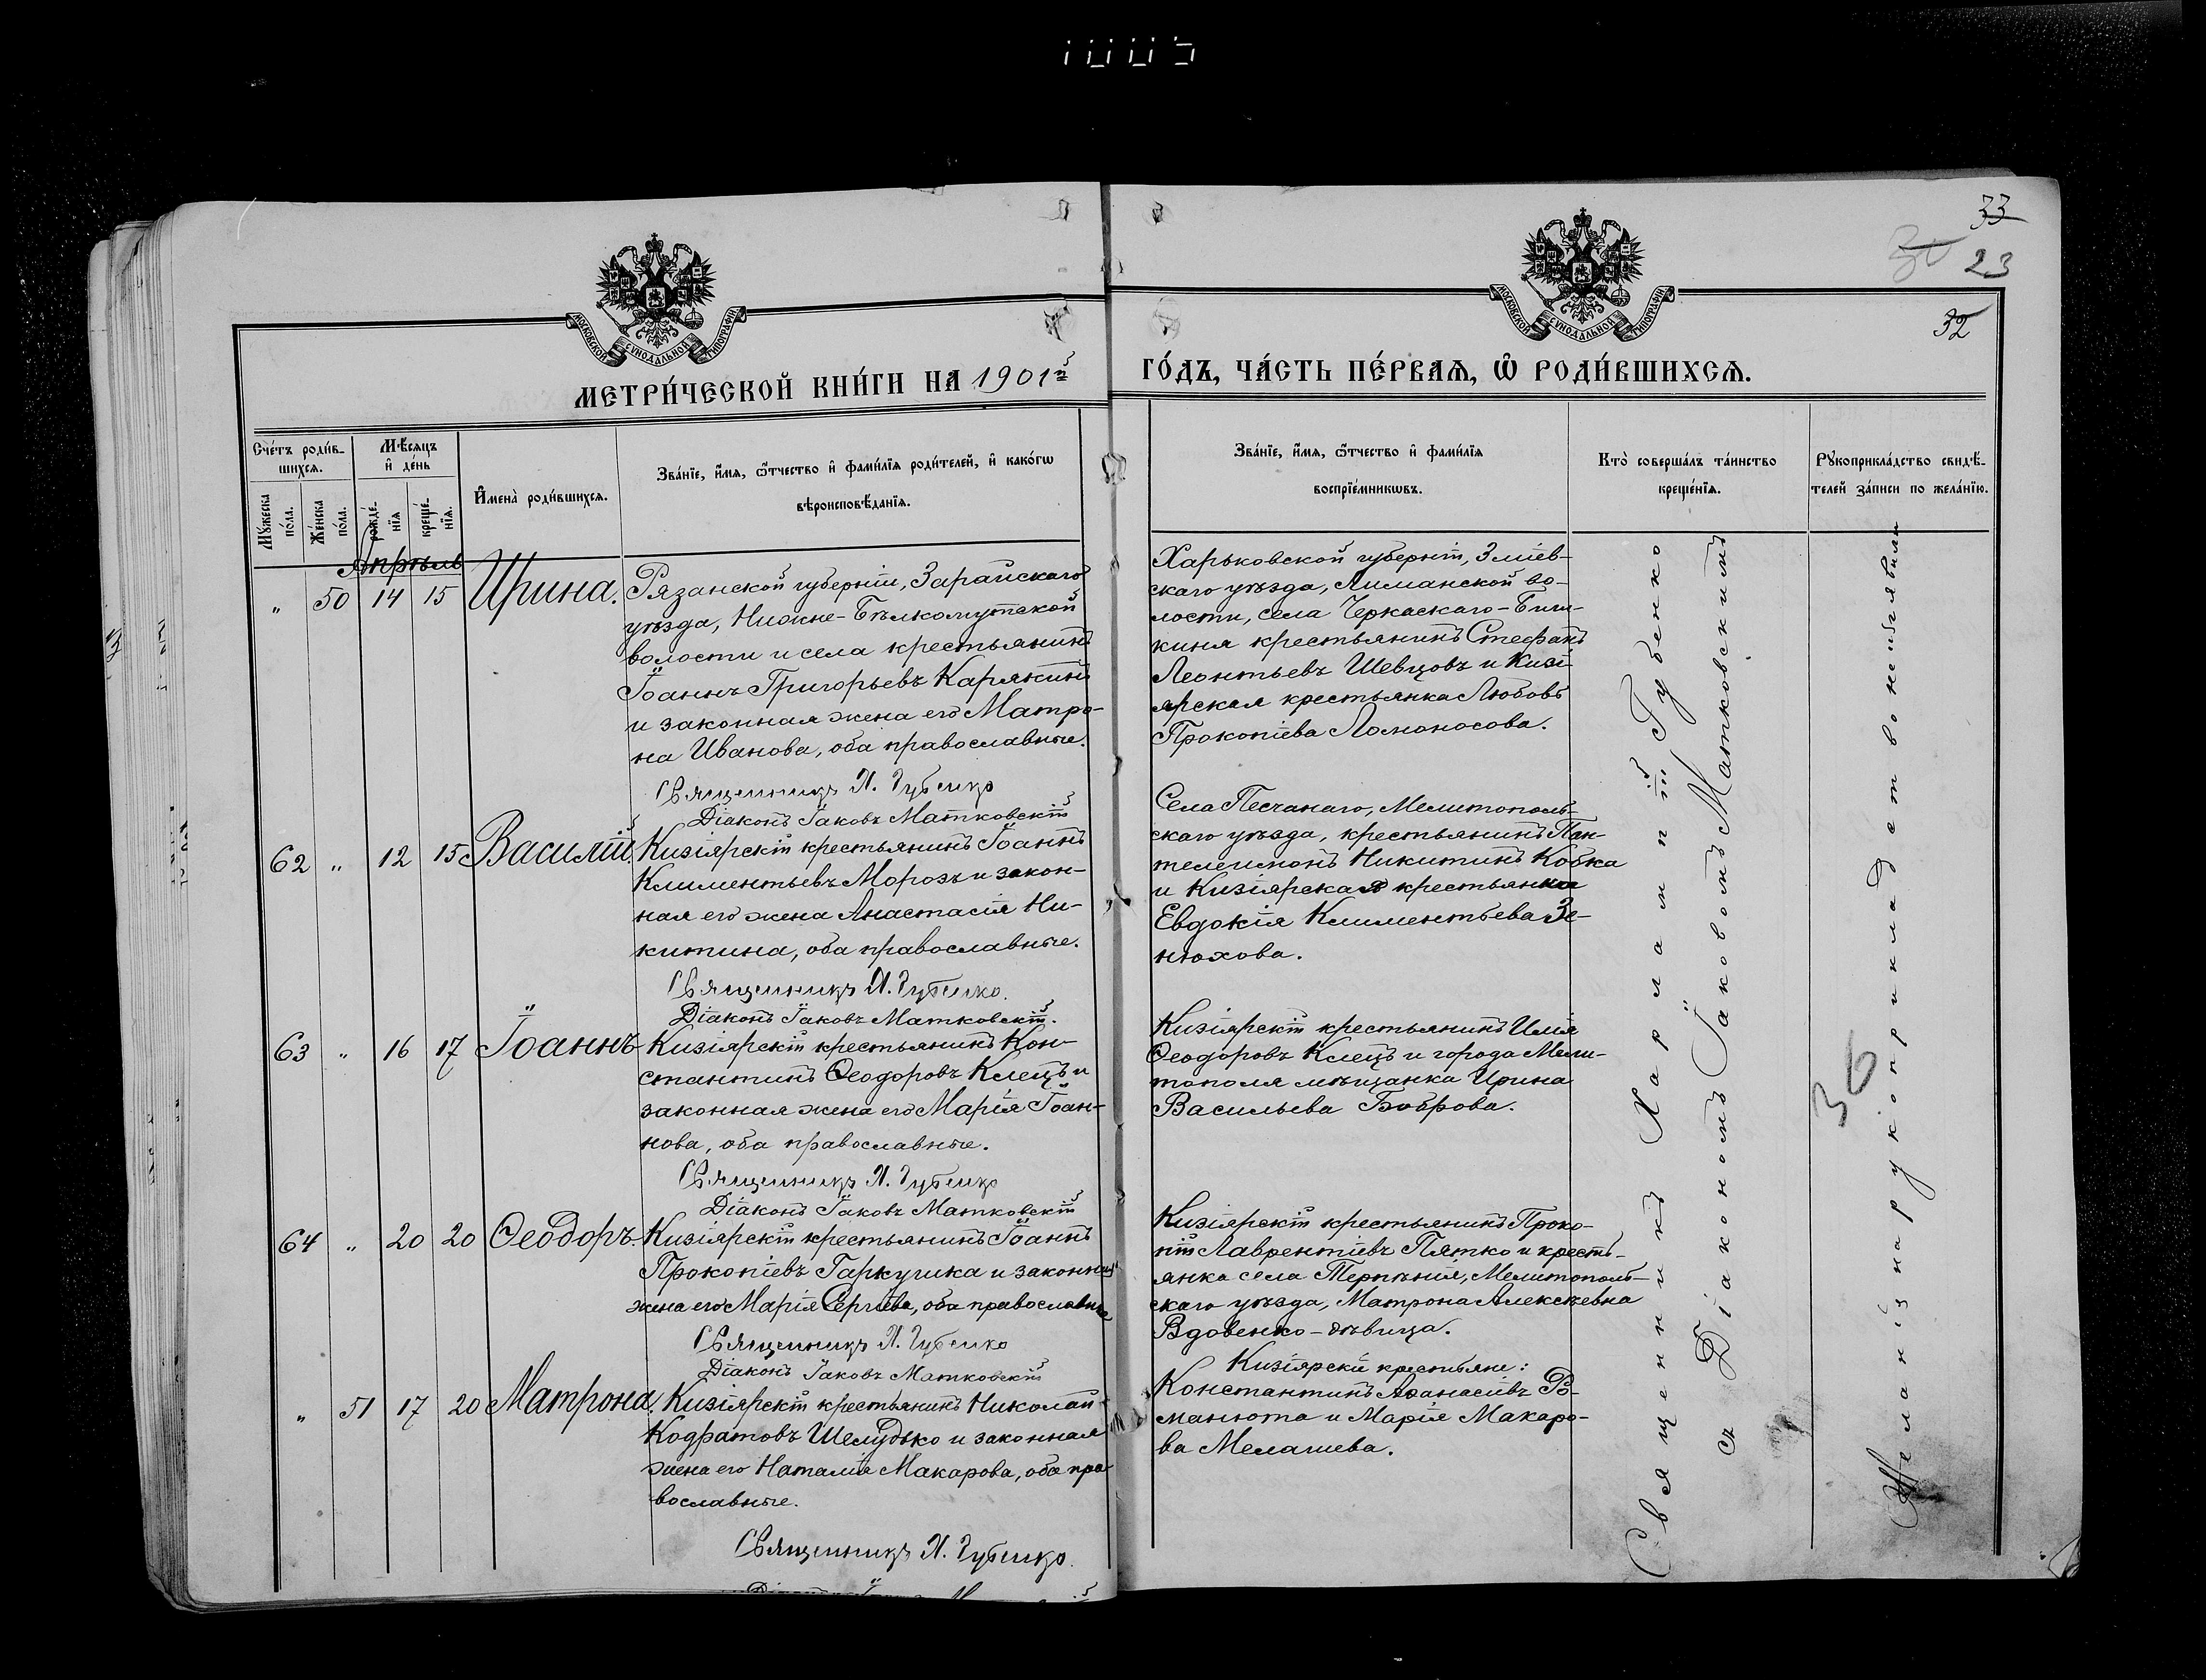 33
30 23
32
МОСКОВСКОЙ СѴНОДАЛЬНОЙ ТИПОГРАФІИ
МОСКОВСКОЙ СѴНОДАЛЬНОЙ ТИПОГРАФІИ
МЕТРИ́ЧЕСКОЙ КНИ́ГИ НА 1901й
ГО́ДЪ, ЧА́СТЬ ПЕ́РВАѦ, Ѽ РОДИ́ВШИХСѦ.
Сче́тъ роди́в-
шихся.
Мѣ́сяцъ
и҆ де́нь
Мꙋ́жеска
по́ла.
Же́нска
по́ла.
рожде́-
нїя
креще́-
нїя.
И҆мена̀ роди́вшихся.
Зва́нїе, и҆́мя, ѻ҆́тчество и҆ фами́лїя роди́телей, и҆ како́гѡ
вѣроисповѣ́данїя.
Зва́нїе, и҆́мя, ѻ҆́тчество и҆ фами́лїя
воспрїе́мникѡвъ.
Кто̀ соверша́лъ та́инство
креще́нїя.
Рꙋкоприкла́дство свидѣ́-
телей за́писи по жела́нїю.
Апрѣль
" 50 14 15 Ирина.
Рязанской губерніи, Зарайскаго
уѣзда, Нижне-Бѣлкомутской
волости и села крестьянинъ
Іоаннъ Григорьевъ Карякинъ
и законная жена его Матро-
на Иванова, оба православные.
Священникъ Х. Губенко
Діаконъ Іаковъ Матковскій
Харьковской губерніи, Зміев-
скаго уѣзда, Лиманской во-
лости, села Черкаскаго-Биш-
киня крестьянинъ Стефанъ
Леонтьевъ Шевцовъ и Кизі
ярская крестьянка Любовь
Прокопіева Ломоносова.
62 " 12 15 Василій.
Кизіярскій крестьянинъ Іоаннъ
Климентьевъ Морозъ и закон-
ная его жена Анастасія Ни-
китина, оба православные.
Священникъ Х. Губенко.
Діаконъ Іаковъ Матковскій.
Села Песчанаго, Мелитополь-
скаго уѣзда, крестьянинъ Пан-
телеимонъ Никитинъ Кобка
и Кизіярская крестьянка
Евдокія Климентьева Зе-
нюхова.
63 " 16 17 Іоаннъ
Кизіярскій крестьянинъ Кон-
стантинъ Ѳеодоровъ Клецъ и
законная жена его Марія Іоан-
нова, оба православные.
Священникъ Х. Губенко
Діаконъ Іаковъ Матковскій
Кизіярскій крестьянинъ Илія
Ѳеодоровъ Клецъ и города Мели-
тополя мѣщанка Ирина
Васильева Боброва.
64 " 20 20 Ѳеодоръ.
Кизіярскій крестьянинъ Іоаннъ
Прокопіевъ Гаркушка и законная
жена его Марія Сергіева, оба православные
Священникъ Х. Губенко
Діаконъ Іаковъ Матковскій
Кизіярскій крестьянинъ Проко-
пій Лаврентіевъ Пятко и кресть-
янка села Терпѣнія, Мелитополь-
скаго уѣзда, Матрона Алексѣевна
Вдовенко-дѣвица.
" 51 17 20 Матрона.
Кизіярскій крестьянинъ Николай
Кодратовъ Шелудько и законная
жена его Наталія Макарова, оба пра
вославные.
Священникъ Х. Губенко.
Кизіярскіе крестьяне:
Константинъ Аѳанасіевъ Ро-
манюта и Марія Макаро-
ва Мелашева.
Священникъ Харлампій Губенко
съ Діакономъ Іаковомъ Матковскимъ
36